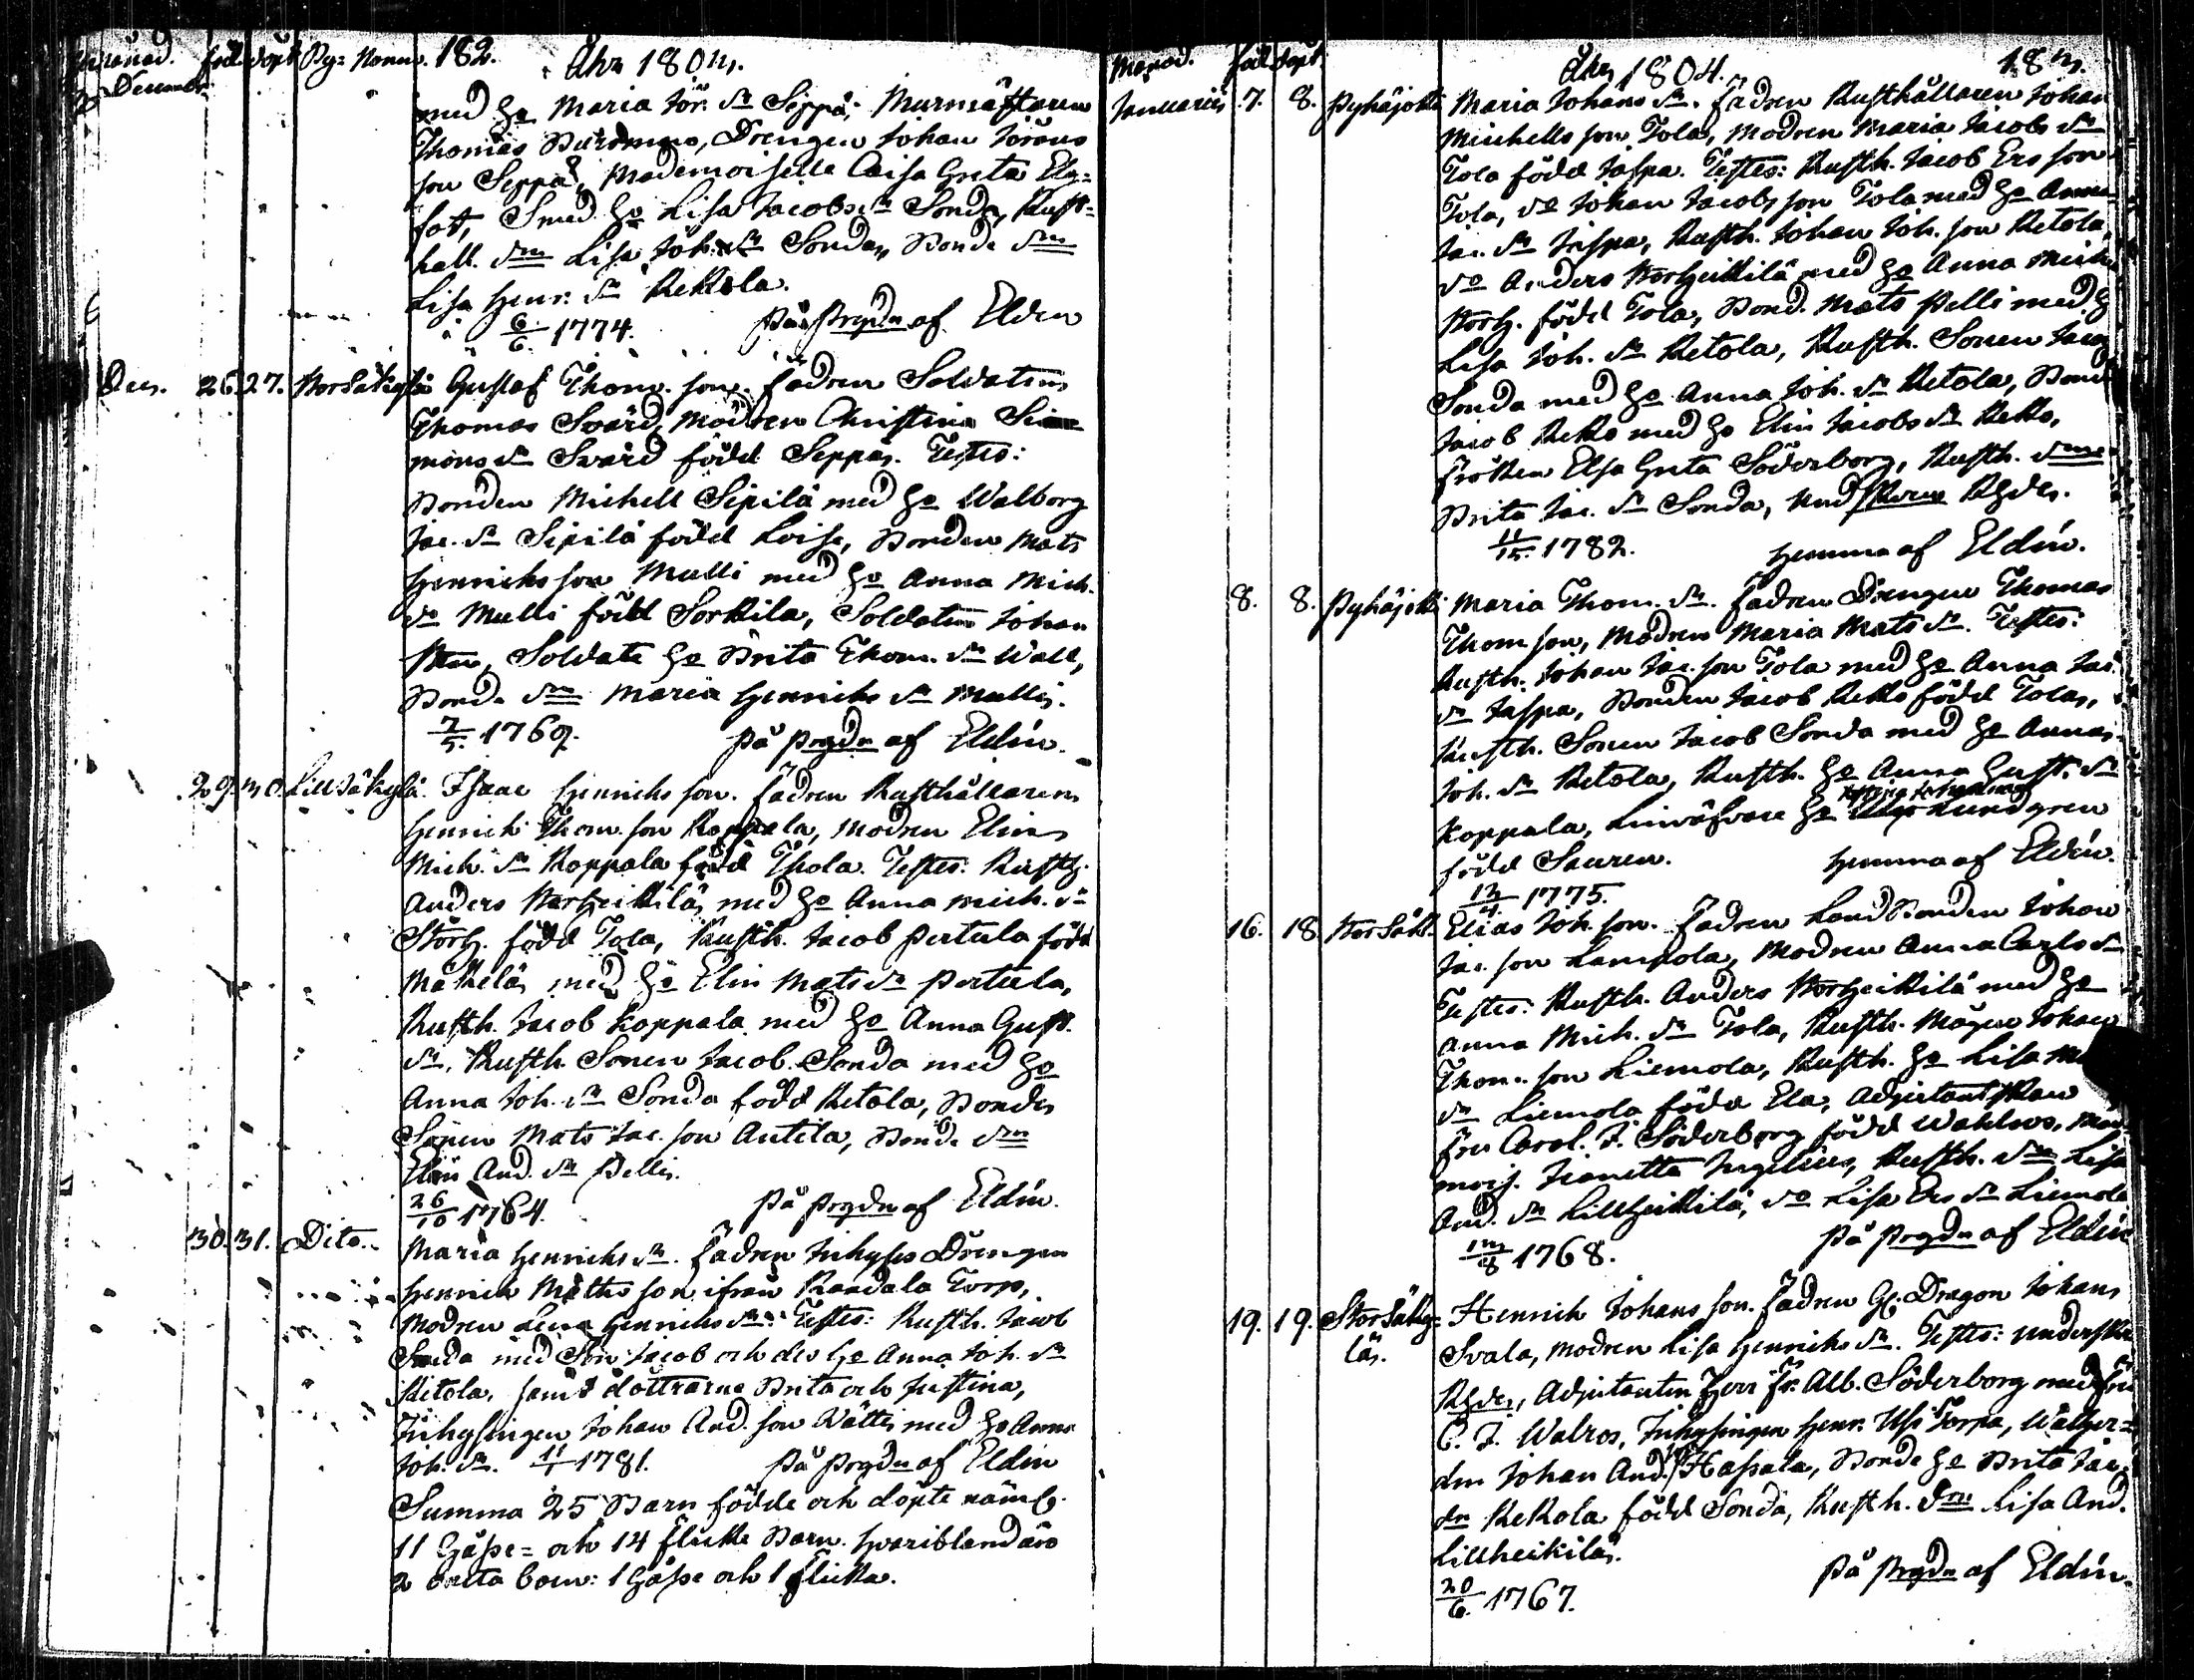 Månad. föd. döpt By: Namn. 182. Åhr 1803.
December
med Ho Maria Jör. dr Seppä, Murmästaren
Thomas Burdman, Drengen Johan Jörans
son Seppä, Mademoiselle Caisa Greta Elg=
fot, Smed Ho Lisa Jacobs dr Sonda, Rust=
håll. drn Lisa Joh. dr Sonda, Bonde drn
Lisa Henr. dr Rekkola.
6/6 1774. På Prgdn af Eldin
Dec. 26. 27. Storsäkylä Gustaf Thom. son. Fadren Soldaten
Thomas Svärd, Modren Christina Si
mons dr Svärd född Seppä. Testes:
Bonden Michell Sipilä med Ho Walborg
Jac. dr Sipilä född Loise, Bonden Mats
Henrichs son Mulli med Ho Anna Mich.
dr Mulli född Sorkkila, Soldaten Johan
Soldate Ho Brita Thom. dr Wall,
Bonde drn Maria Henrichs dr Mulli.
7/5. 1769. På prgdn af Eldin.
29. 30. Lillsäkylä. Isaac Henrichs son. Fadren Rusthållaren
Henrich Thom. son Koppala, Modren Elin
Mich. dr Koppala född Thola. Testes: Rusth.
Anders Storheikkilä med Ho Anna Mich. dr
Storh. född Tola, Rusth. Jacob Pertula född
Mäkelä, med Ho Elin Mats dr Pertula,
Rusth. Jacob Koppala med Ho Anna Gust.
dr, Rusth. Sonen Jacob Sonda med Ho
Anna Joh. dr Sonda född Ketola, Bonde
Sonen Mats Jac. son Antila, Bonde drn
Elin And. dr Pelli.
26/10 1764. På prgdn af Eldin.
30. 31. Dito. Maria Henrichs dr. Fadren Inhyses Drengen
Henrich Matts son ifrån Raadala Torp,
Modren Lena Henrichs dr. Testes: Rusth. Jacob
Sonda med Son Jacob och des Ho Anna Joh. dr
Ketola, samt döttrarne Brita och Justina,
Inhysingen Johan And. son Wätti med Ho Anna
Joh. dr. 11/1 1781. På prgdn af Eldin
Summa 25 Barn födde och döpte näml.
11 Gåsse= och 14 flicke Barn. hvaribland äro
2 oächta barn: 1 Gåsse och 1 flicka.
Månad. föd. döpt. Åhr 1804. 183.
Januarius. 7. 8. Pyhäjoki Maria Johans dr. Fadren Rusthållaren Johan
Michells son Tola, Modren Maria Jacobs dr
Tola född Jaspa. Testes: Rusth. Jacob Ers son
Tola, do Johan Jacobs son Tola med Ho Anna
Jac. dr Jaspa, Rusth. Johan Joh. son Ketola,
do Anders Storheikkilä med Ho Anna Mich.
Storh. född Tola, Bond. Mats Pelli med H
Lisa Joh. dr Ketola, Rusth. Sonen Jacob
Sonda med Ho Anna Joh. dr Ketola, Bond
Jacob Rekko med Ho Elin Jacobs dr Rekko,
Fröken Elsa Greta Söderborg, Rusth. drne
Brita Jac. dr Sonda, Und Rhde.
11/15. 1782. Hemma af Eldin.
8. 8. Pyhäjoki Maria Thom. dr. Fadren Drengen Thomas
Thom. son, Modren Maria Mats dr. Testes:
Rusth. Johan Jac. son Tola med Ho Anna Jac.
dr Jaspa, Bonden Jacob Rekko född Tola,
Rusth. Sonen Jacob Sonda med Ho Anna
Joh. dr Ketola, Rusth. Ho Anna Gust. dr
Koppala, Linväfvare Ho Lundgren
född Sauren. Hemma af Eldin.
13/4. 1775.
16. 18. Storsäk. Elias Joh. son. Fadren Landbonden Johan
Jac. son Lampola, Modren Anna Carls dr
Testes: Rusth. Anders Storheikkilä med Ho
Anna Mich. dr Tola, Rusth. Mågen Johan
Thom. son Liemola, Rusth. Ho Lisa
dr Liemola född Ela, Adjutantskan
Fru Carol. F. Söderborg född Wahlros, Mad
mois. Jeanetta Ingelius, Rusth. drn Lisa
And. dr Lillheikkilä, do Lisa Ers dr Liemola
13/8 1768. På prgdn af Eldin
19. 19. Storsäky= Henrich Johans son. Fadren Gl. Dragon Johan
lä. Svala, Modren Lisa Henrichs dr. Testes: underskr.
Rhde, Adjutanten Herr Fr. Alb. Söderborg med Fru
C. F. Walros, Inhysingen Henr. Torpa, Walker=
dn Johan And. son Hassala, Bonde Ho Brita Jac.
dr Rekola född Sonda, Rusth. drn Lisa And.
Lillheikilä.
20/6. 1767. På prgdn af Eldin.